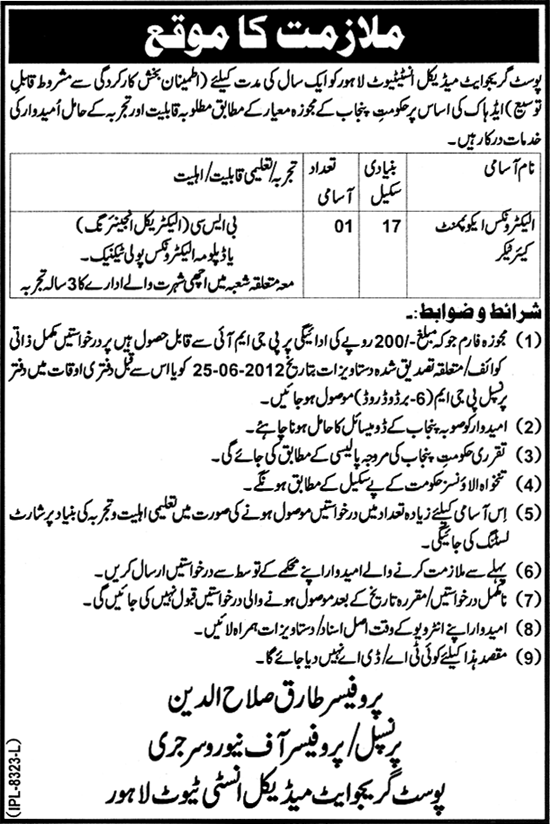 ملازمت کا موقع
پوسٹ گریجوایٹ میڈیکل انسٹیٹیوٹ لاہور کو ایک سال کی مدت کیلئے (اطمینان بخش کارکردگی سے مشروط قابلِ
توسیع) ایڈہاک کی اساس پر حکومتِ پنجاب کے مجوزہ معیار کے مطابق مطلوبہ قابلیت اور تجربہ کے حامل اُمیدوار کی
خدمات درکار ہیں۔
نام آسامی | بنیادی سکیل | تعداد آسامی | تجربہ/تعلیمی قابلیت/اہلیت
الیکٹرونکس ایکوپمنٹ کیئرٹیکر | 17 | 01 | بی ایس سی (الیکٹریکل انجینئرنگ)
یا ڈپلومہ الیکٹرونکس پولی ٹیکنیک۔
معہ متعلقہ شعبہ میں اچھی شہرت والے ادارے کا 3 سالہ تجربہ
شرائط و ضوابط:۔
(1) مجوزہ فارم جو کہ مبلغ -/200 روپے کی ادائیگی پر پی جی ایم آئی سے قابل حصول ہیں پر درخواستیں مکمل ذاتی
کوائف/متعلقہ تصدیق شدہ دستاویزات بتاریخ 25-06-2012 کو یا اس سے قبل دفتری اوقات میں دفتر
پرنسپل پی جی ایم (6-برڈوڈ روڈ) موصول ہو جائیں۔
(2) امیدوار کو صوبہ پنجاب کے ڈومیسائل کا حامل ہونا چاہئے۔
(3) تقرری حکومتِ پنجاب کی مروجہ پالیسی کے مطابق کی جائے گی۔
(4) تنخواہ الاؤنسز حکومت کے پے سکیل کے مطابق ہونگے۔
(5) اِس آسامی کیلئے زیادہ تعداد میں درخواستیں موصول ہونے کی صورت میں تعلیمی اہلیت و تجربہ کی بنیاد پر شارٹ
لسٹنگ کی جائیگی۔
(6) پہلے سے ملازمت کرنے والے امیدوار اپنے محکمے کے توسط سے درخواستیں ارسال کریں۔
(7) نامکمل درخواستیں/مقررہ تاریخ کے بعد موصول ہونے والی درخواستیں قبول نہیں کی جائیں گی۔
(8) امیدوار اپنے انٹرویو کے وقت اصل اسناد/دستاویزات ہمراہ لائیں۔
(9) مقصد ہذا کیلئے کوئی ٹی اے/ڈی اے نہیں دیا جائے گا۔
پروفیسر طارق صلاح الدین
پرنسپل/پروفیسر آف نیوروسرجری
پوسٹ گریجوایٹ میڈیکل انسٹی ٹیوٹ لاہور
(IPL-8323-L)